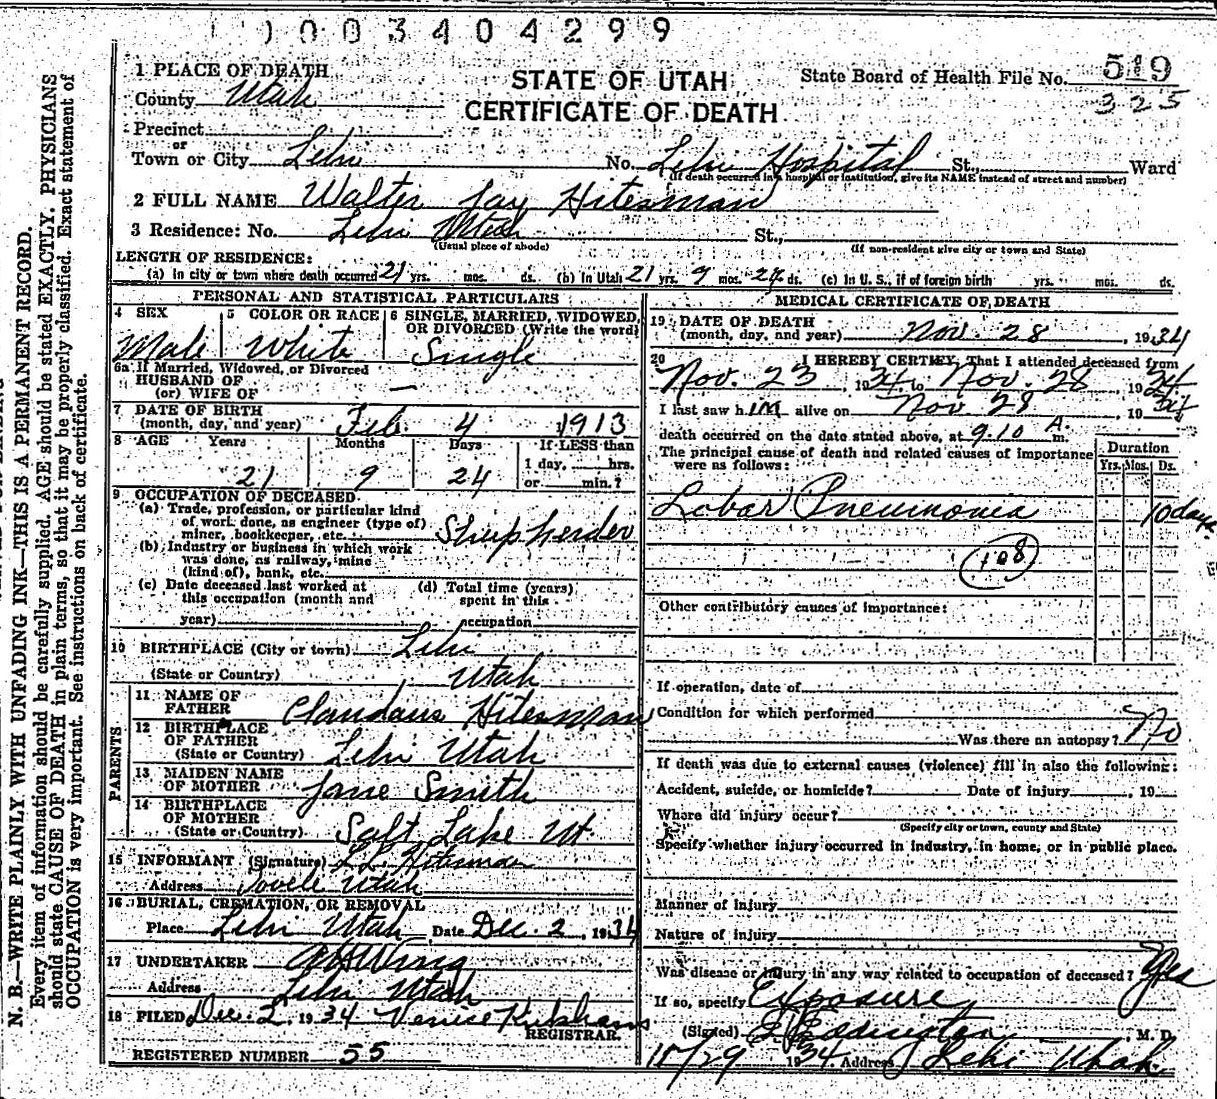 1003404299
1 PLACE OF DEATH
County Utah
STATE OF UTAH
CERTIFICATE OF DEATH
State Board of Health File No. 519
325
Precinct
or
Town or City Lehi No. Lehi Hospital St., Ward
(If death occurred in a hospital or institution, give its NAME instead of street and number)
2 FULL NAME Walter Jay Hitesman
3 Residence: No. Lehi Utah St.,
(Usual place of abode) (If non-resident give city or town and State)
LENGTH OF RESIDENCE:
(a) In city or town where death occurred 21 yrs. mos. ds. (b) In Utah 21 yrs. 9 mos. 24 ds. (c) In U. S., if of foreign birth yrs. mos. ds.
PERSONAL AND STATISTICAL PARTICULARS
4 SEX 5 COLOR OR RACE 6 SINGLE, MARRIED, WIDOWED,
OR DIVORCED (Write the word)
Male White Single
6a If Married, Widowed, or Divorced
HUSBAND OF
(or) WIFE OF —
7 DATE OF BIRTH
(month, day, and year) Feb. 4 1913
8 AGE Years Months Days If LESS than
1 day, hrs.
21 9 24 or min.?
9 OCCUPATION OF DECEASED
(a) Trade, profession, or particular kind
of work done, as engineer (type of)
miner, bookkeeper, etc. Sheep herder
(b) Industry or business in which work
was done, as railway, mine
(kind of), bank, etc.
(c) Date deceased last worked at (d) Total time (years)
this occupation (month and spent in this
year) occupation
10 BIRTHPLACE (City or town) Lehi
(State or Country) Utah
PARENTS
11 NAME OF
FATHER Claudaus Hitesman
12 BIRTHPLACE
OF FATHER
(State or Country) Lehi Utah
13 MAIDEN NAME
OF MOTHER Jane Smith
14 BIRTHPLACE
OF MOTHER
(State or Country) Salt Lake Ut.
15 INFORMANT (Signature) Hitesman
Address Utah
16 BURIAL, CREMATION, OR REMOVAL
Place Lehi Utah Date Dec. 2, 1934
17 UNDERTAKER Wing
Address Lehi Utah
18 FILED Dec. 2, 1934 Venice
REGISTRAR.
REGISTERED NUMBER 55
MEDICAL CERTIFICATE OF DEATH
19 DATE OF DEATH
(month, day, and year) Nov. 28, 1934
20 I HEREBY CERTIFY, That I attended deceased from
Nov. 23, 1934 to Nov. 28, 1934
I last saw him alive on Nov. 28, 1934
death occurred on the date stated above, at 9:10 A. m.
The principal cause of death and related causes of importance
were as follows:
Duration
Yrs. Mos. Ds.
Lobar Pneumonia 10 days
108
Other contributory causes of importance:
If operation, date of
Condition for which performed
Was there an autopsy? No
If death was due to external causes (violence) fill in also the following:
Accident, suicide, or homicide? Date of injury, 19
Where did injury occur?
(Specify city or town, county and State)
Specify whether injury occurred in industry, in home, or in public place.
Manner of injury
Nature of injury
Was disease or injury in any way related to occupation of deceased? Yes
If so, specify Exposure
(Signed) Eddington, M. D.
1934. Address Lehi Utah
N. B.—WRITE PLAINLY, WITH UNFADING INK—THIS IS A PERMANENT RECORD.
Every item of information should be carefully supplied. AGE should be stated EXACTLY. PHYSICIANS
should state CAUSE OF DEATH in plain terms, so that it may be properly classified. Exact statement of
OCCUPATION is very important. See instructions on back of certificate.